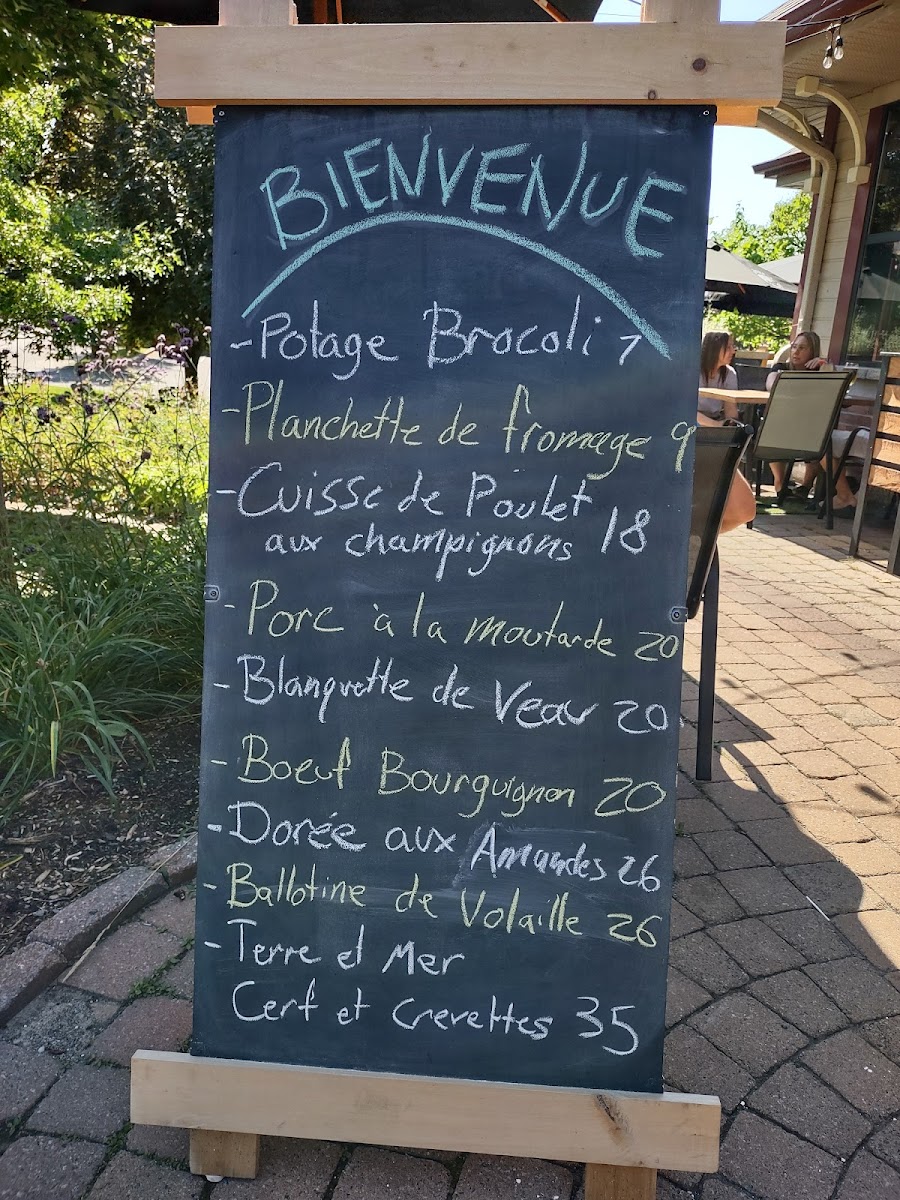 BIENVENUE
-Potage Brocoli 7
-Planchette de fromage 9
-Cuisse de Poulet
aux champignons 18
- Porc à la moutarde 20
-Blanquette de Veau 20
- Boeuf Bourguignon 20
-Dorée aux Amandes 26
-Ballotine de Volaille 26
-Terre et Mer
Cerf et Crevettes 35